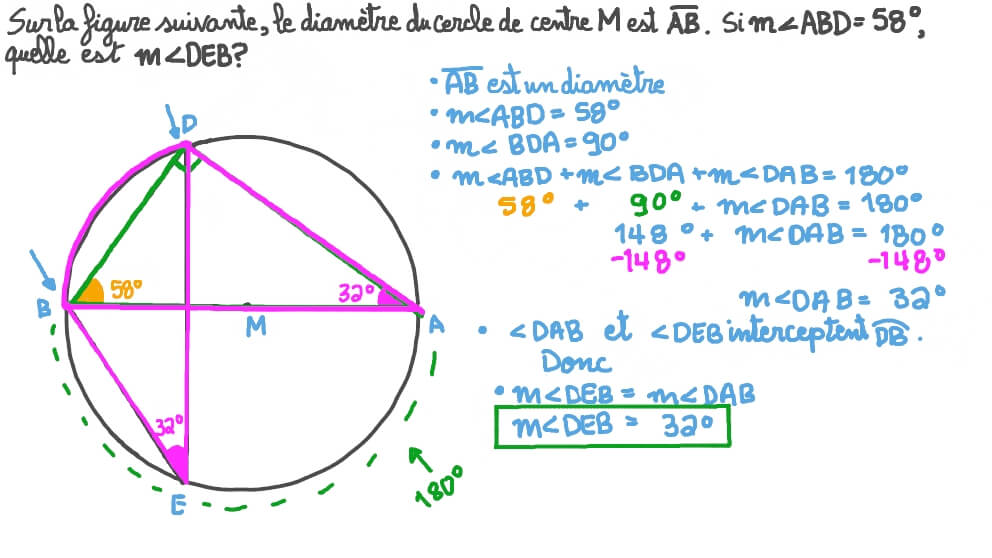 Sur la figure suivante, le diamètre du cercle de centre M est AB. Si m∠ABD = 58°,
quelle est m∠DEB?
• AB est un diamètre
• m∠ABD = 58°
• m∠ BDA = 90°
• m∠ABD + m∠ BDA + m∠DAB = 180°
58° + 90° + m∠DAB = 180°
148° + m∠DAB = 180°
-148° -148°
m∠DAB = 32°
• ∠DAB et ∠DEB interceptent DB.
Donc
• m∠DEB = m∠DAB
m∠DEB = 32°
D
B
58°
32°
M
A
32°
E
180°